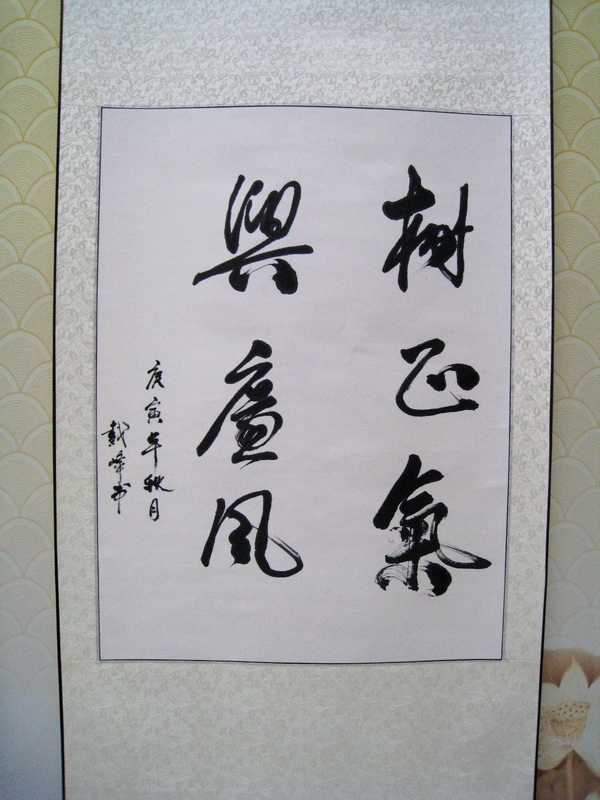 樹正氣
興廉風
庚寅年秋月
戴峰书